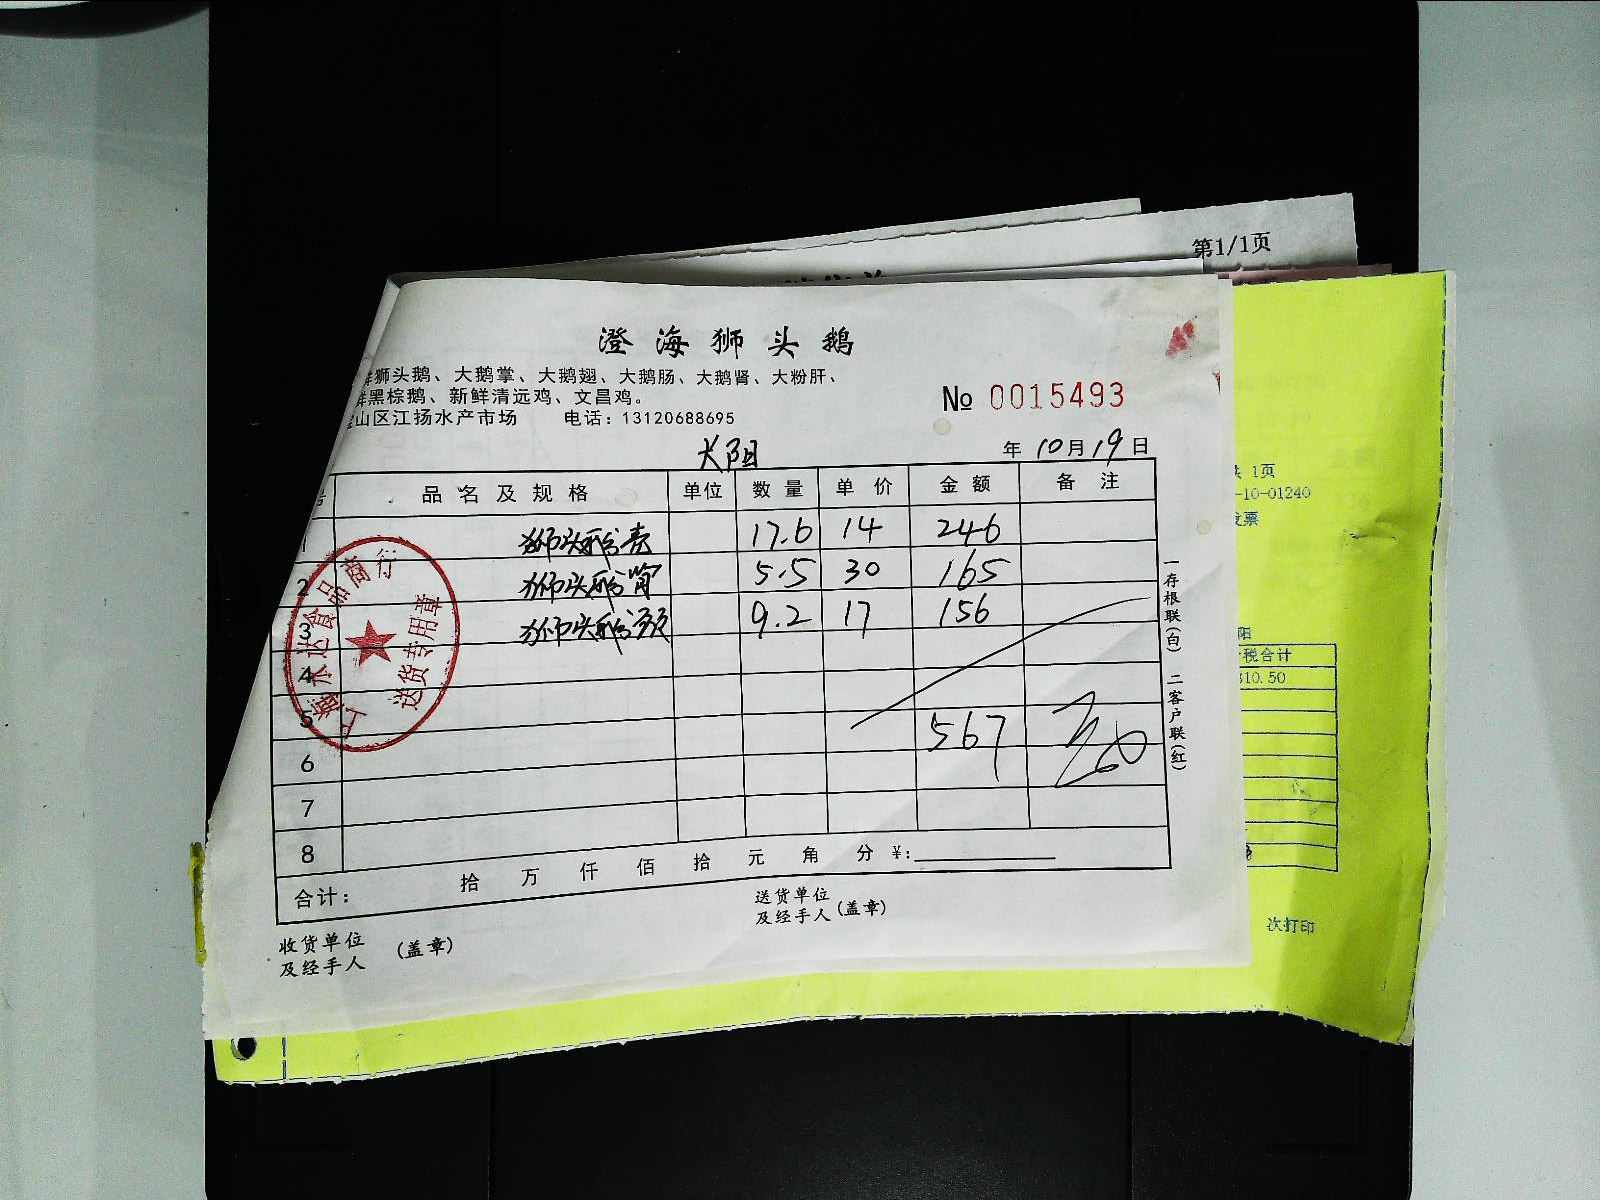 第1/1页
澄海狮头鹅
狮头鹅、大鹅掌、大鹅翅、大鹅肠、大鹅肾、大粉肝、
鲜黑棕鹅、新鲜清远鸡、文昌鸡。
山区江扬水产市场 电话：13120688695
№ 0015493
大阳
年 10月19日
品名及规格 单位 数量 单价 金额 备注
狮头鹅壳 17.6 14 246
2 狮头鹅肾 5.5 30 165
3 狮头鹅颈 9.2 17 156
4
5 567
6
7
8
合计： 拾 万 仟 佰 拾 元 角 分 ¥：
收货单位
及经手人 （盖章）
送货单位
及经手人（盖章）
一存根联（白） 二客户联（红）
上海永达食品商行
送货专用章
1页
-10-01240
发票
阳
税合计
310.50
次打印